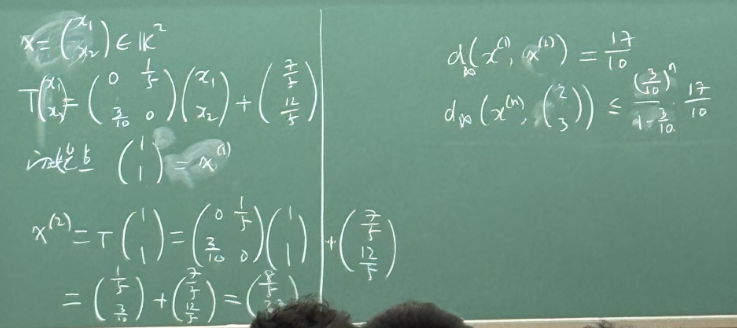 x = (x₁ x₂) ∈ K²
T(x₁ x₂) = (0 1/5 3/10 0)(x₁ x₂) + (7/5 12/5)
(1 1) = x⁽¹⁾
x⁽²⁾ = T(1 1) = (0 1/5 3/10 0)(1 1) + (7/5 12/5)
= (1/5 3/10) + (7/5 12/5) = (8/5
d∞(x⁽¹⁾, x⁽²⁾) = 17/10
d∞(x⁽ⁿ⁾, (2 3)) ≤ (3/10)ⁿ/(1-3/10) · 17/10